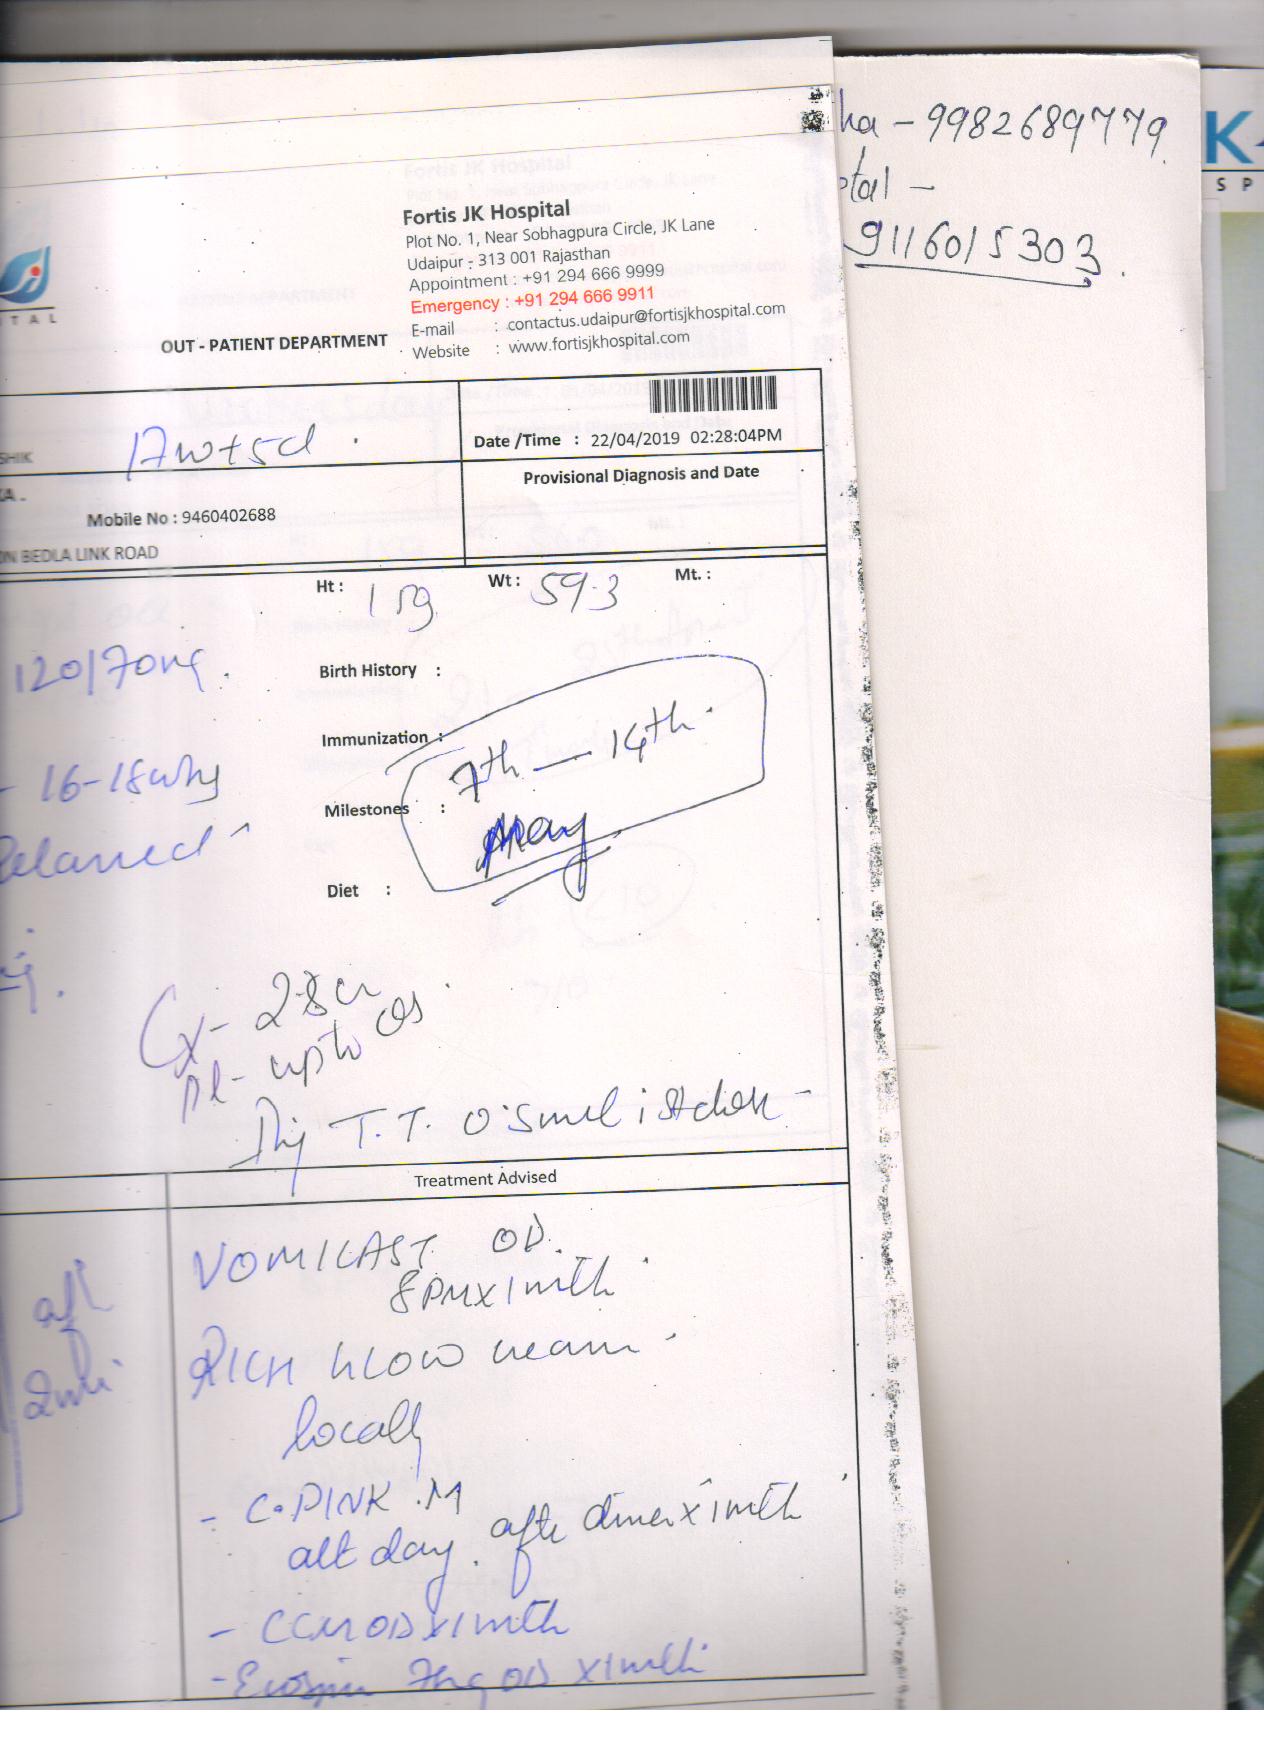 ha - 9982689779.
tal -
9116015303.
K
S P
Fortis JK Hospital
Plot No. 1, Near Sobhagpura Circle, JK Lane
Udaipur - 313 001 Rajasthan
Appointment : +91 294 666 9999
Emergency : +91 294 666 9911
E-mail : contactus.udaipur@fortisjkhospital.com
Website : www.fortisjkhospital.com
TAL
OUT - PATIENT DEPARTMENT
SHIK
17w+5d
Date /Time : 22/04/2019 02:28:04PM
KA .
Provisional Diagnosis and Date
Mobile No : 9460402688
ON BEDLA LINK ROAD
Ht : 159
Wt : 59.3
Mt. :
120/70
Birth History :
Immunization :
7th - 14th
- 16-18
Milestones :
May
Relaxed
Diet :
Cx - 2.8
pl - upto os
Inj T.T. 0.5ml
Treatment Advised
VOMIKAST OD.
8PMX1mth
aft
RICH GLOW cream
locally
- C. PINK .M
alt day. after dinnerX1mth
- CCM OD X1mth
- Ecosprin OD X1mth